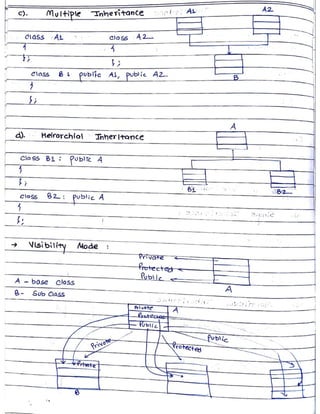 c). Multiple Inheritance
A1 A2
class A1 class A2
{ {
}; };
class B : public A1, public A2
B
{
};
A
d). Heirarchial Inheritance
class B1 : public A
{
};
B1 B2
class B2 : public A
{
};
→ Visibility Mode :
Private
Protected
Public
A
A - base class
B - Sub class
Private A
Protected
Public
Private Protected Public
Private
B